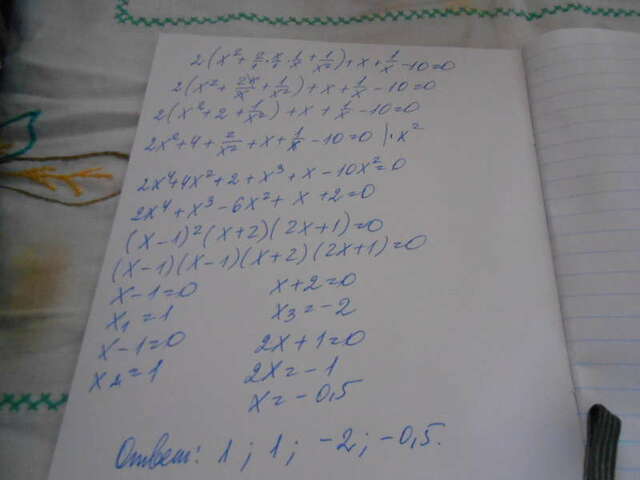 2(x² + 2/1 · x/1 · 1/x + 1/x²) + x + 1/x - 10 = 0
2(x² + 2x/x + 1/x²) + x + 1/x - 10 = 0
2(x² + 2 + 1/x²) + x + 1/x - 10 = 0
2x² + 4 + 2/x² + x + 1/x - 10 = 0 | · x²
2x⁴ + 4x² + 2 + x³ + x - 10x² = 0
2x⁴ + x³ - 6x² + x + 2 = 0
(x - 1)² (x + 2) (2x + 1) = 0
(x - 1) (x - 1) (x + 2) (2x + 1) = 0
x - 1 = 0 x + 2 = 0
x₁ = 1 x₃ = -2
x - 1 = 0 2x + 1 = 0
x₂ = 1 2x = -1
x = -0,5
Ответ: 1 ; 1 ; -2 ; -0,5.